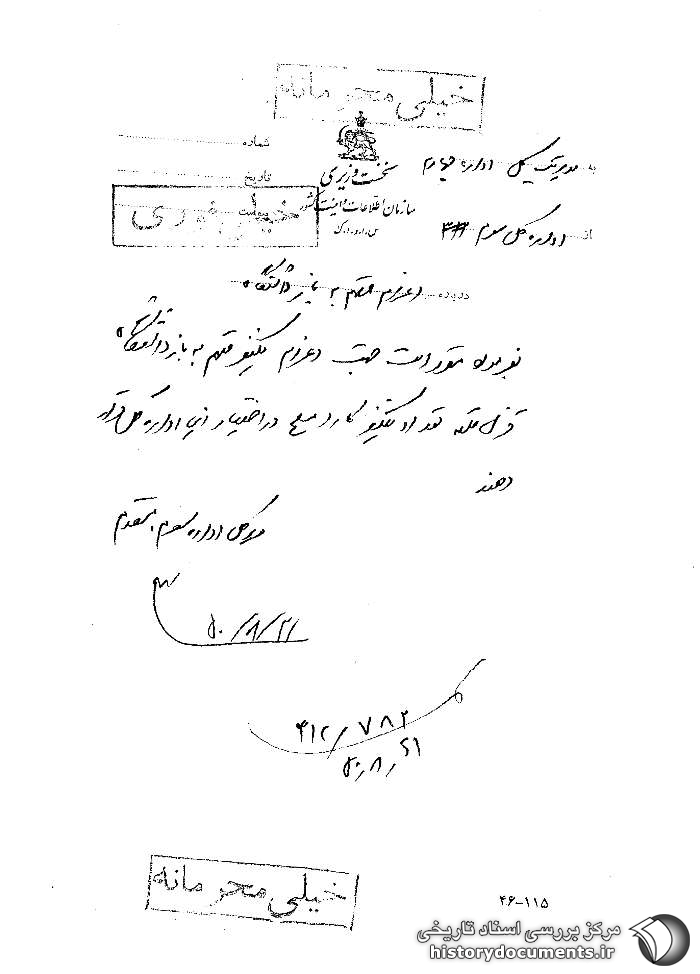 خیلی محرمانه
شماره
تاریخ
پیوست
نخست وزیری
سازمان اطلاعات و امنیت کشور
س.ا.و.ا.ک
خیلی فوری
به مدیریت کل اداره چهارم
از اداره کل سوم ۳۱۲
درباره اعزام متهم به بازداشتگاه
اعزام یکنفر متهم به بازداشتگاه
قزل قلعه تعداد یکنفر مسلح در اختیار این اداره کل قرار
دهند
مدیر کل اداره سوم. مقدم
۵۰/۸/۲۱
۳۱۲/۷۸۲
۵۰/۸/۲۱
خیلی محرمانه
۴۶-۱۱۵
مرکز بررسی اسناد تاریخی
historydocuments.ir